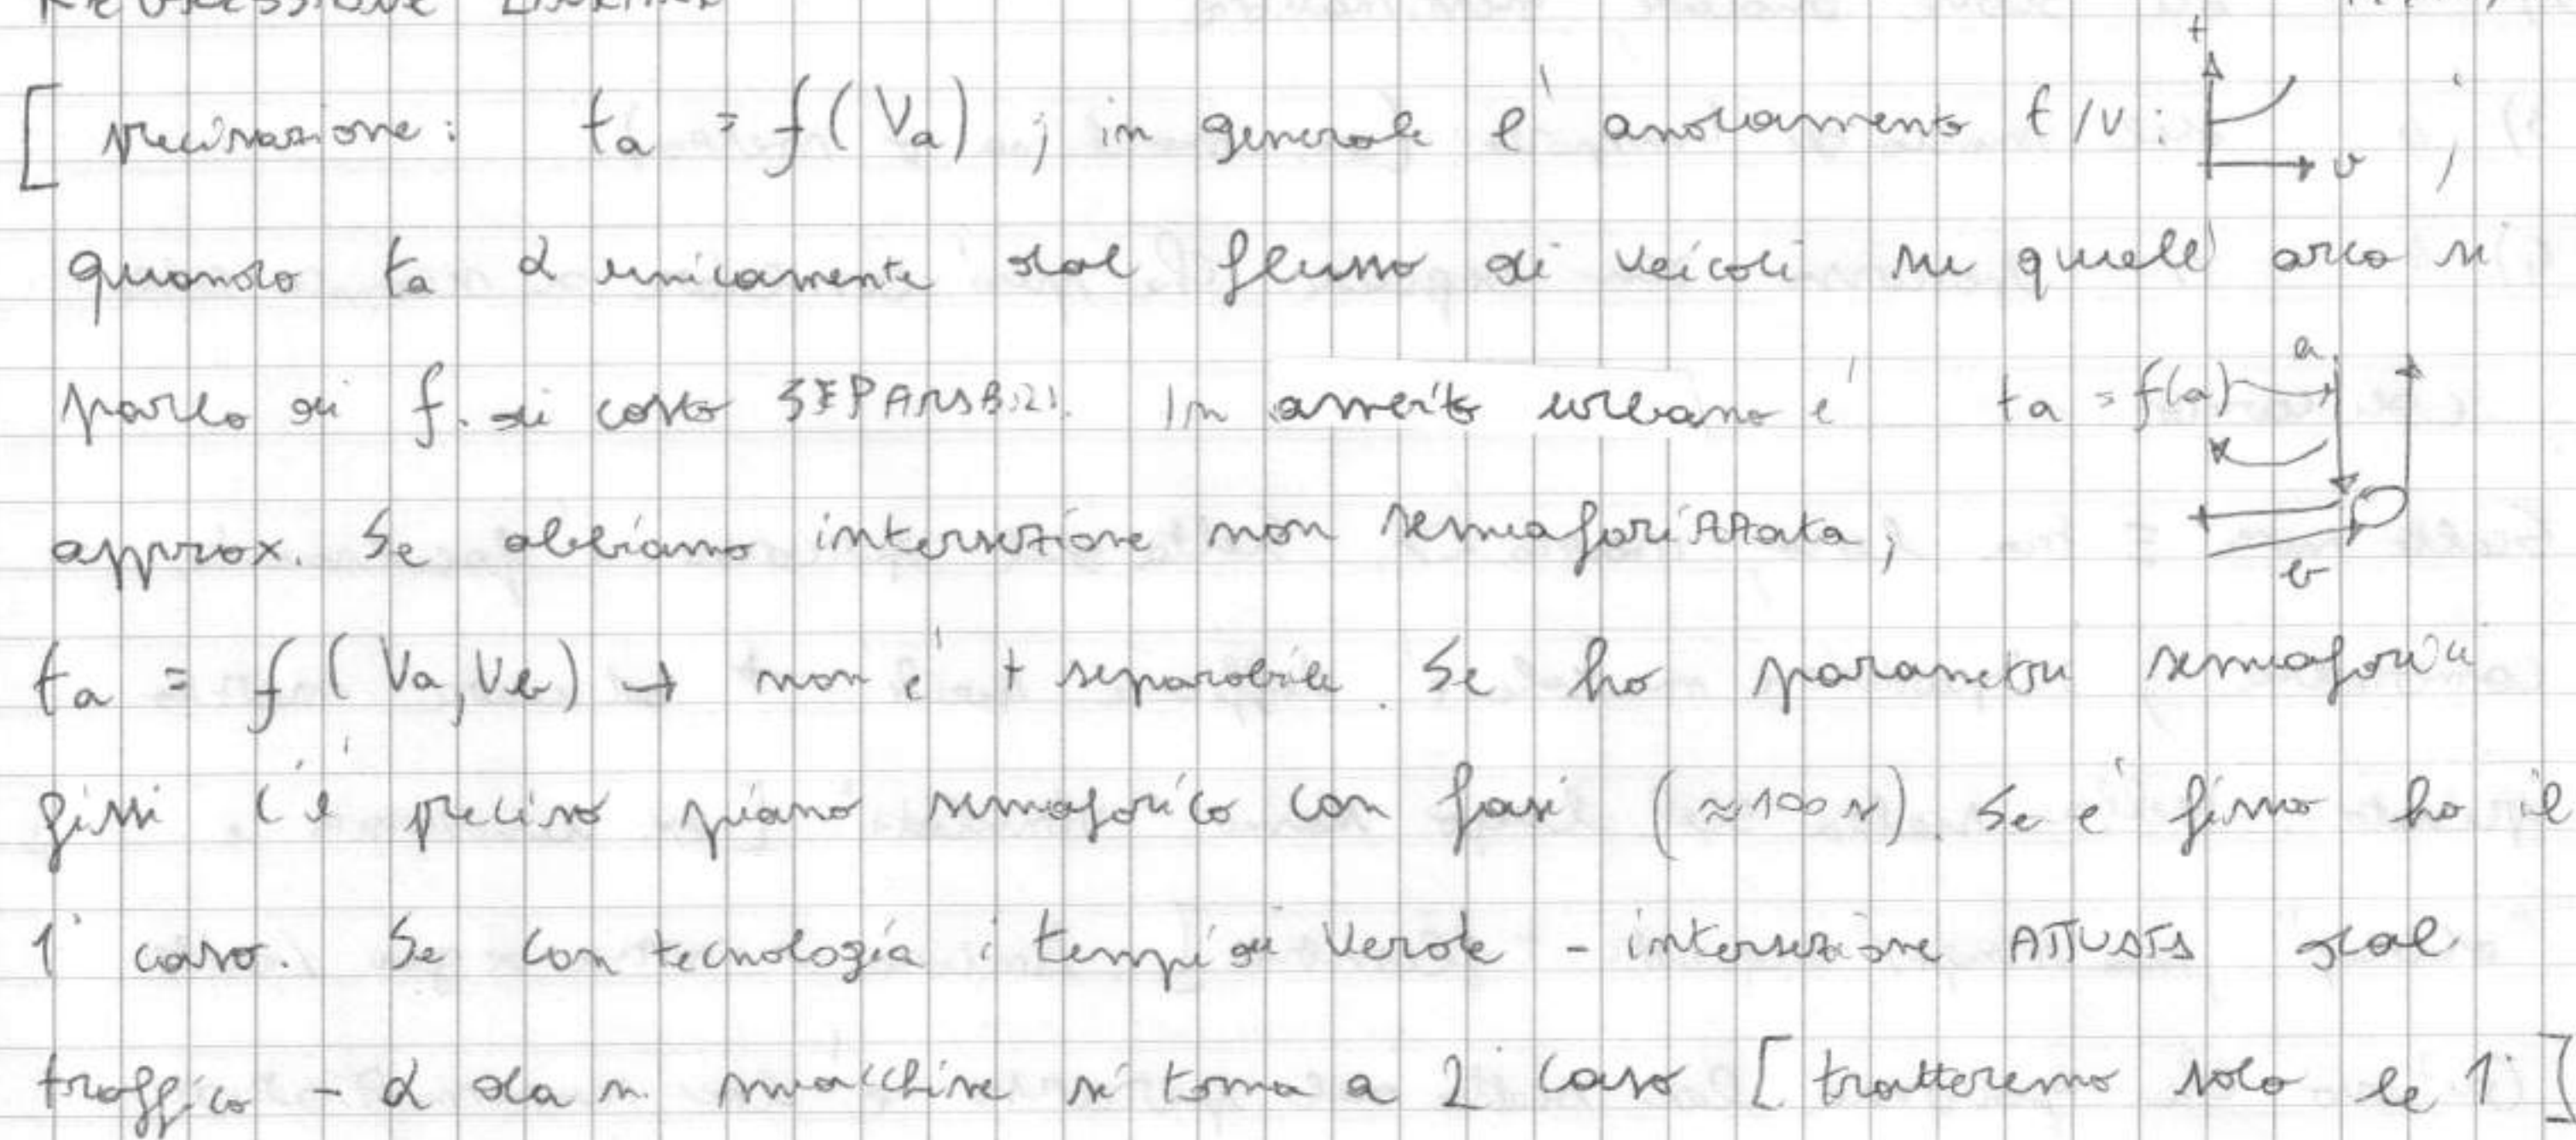 REGRESSIONE LINEARE
[ precisazione: ta = f(Va) ; in generale l' andamento t/v: t v ;
quando ta α unicamente dal flusso di veicoli su quell' arco si
parla di f. di costo SEPARABILI. In ambito urbano è ta = f(a) a
approx. Se abbiamo intersezione non semaforizzata, b
ta = f (Va, Vb) → non è + separabile. Se ho parametri semaforici
fissi c'è preciso piano semaforico con fasi (≈100 s). Se è fisso ho il
1° caso. Se con tecnologia i tempi di verde - intersezione ATTUATA dal
traffico - α da n. macchine si torna a 2° caso [ tratteremo solo le 1° ]